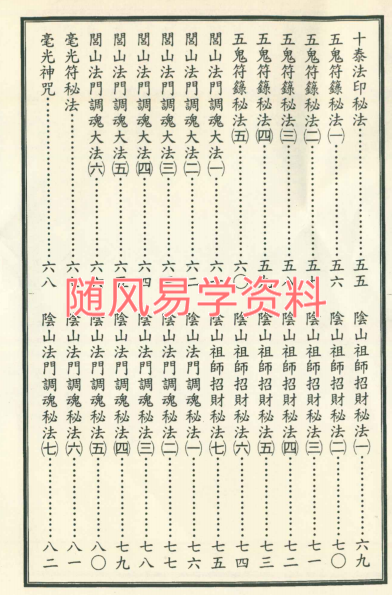 十泰法印秘法……五五
五鬼符籙秘法㈠……五六
五鬼符籙秘法㈡……五
五鬼符籙秘法㈢……五八
五鬼符籙秘法㈣……五九
五鬼符籙秘法㈤……六〇
閭山法門調魂大法㈠……六
閭山法門調魂大法㈡……六二
閭山法門調魂大法㈢……六
閭山法門調魂大法㈣……六四
閭山法門調魂大法㈤……六
閭山法門調魂大法㈥……六
毫光符秘法……六
毫光神咒……六八
陰山祖師招財秘法㈠……六九
陰山祖師招財秘法㈡……七〇
陰山祖師招財秘法㈢……七一
陰山祖師招財秘法㈣……七二
陰山祖師招財秘法㈤……七三
陰山祖師招財秘法㈥……七四
陰山祖師招財秘法㈦……七五
陰山法門調魂秘法㈠……七六
陰山法門調魂秘法㈡……七七
陰山法門調魂秘法㈢……七八
陰山法門調魂秘法㈣……七九
陰山法門調魂秘法㈤……八〇
陰山法門調魂秘法㈥……八一
陰山法門調魂秘法㈦……八二
随风易学资料